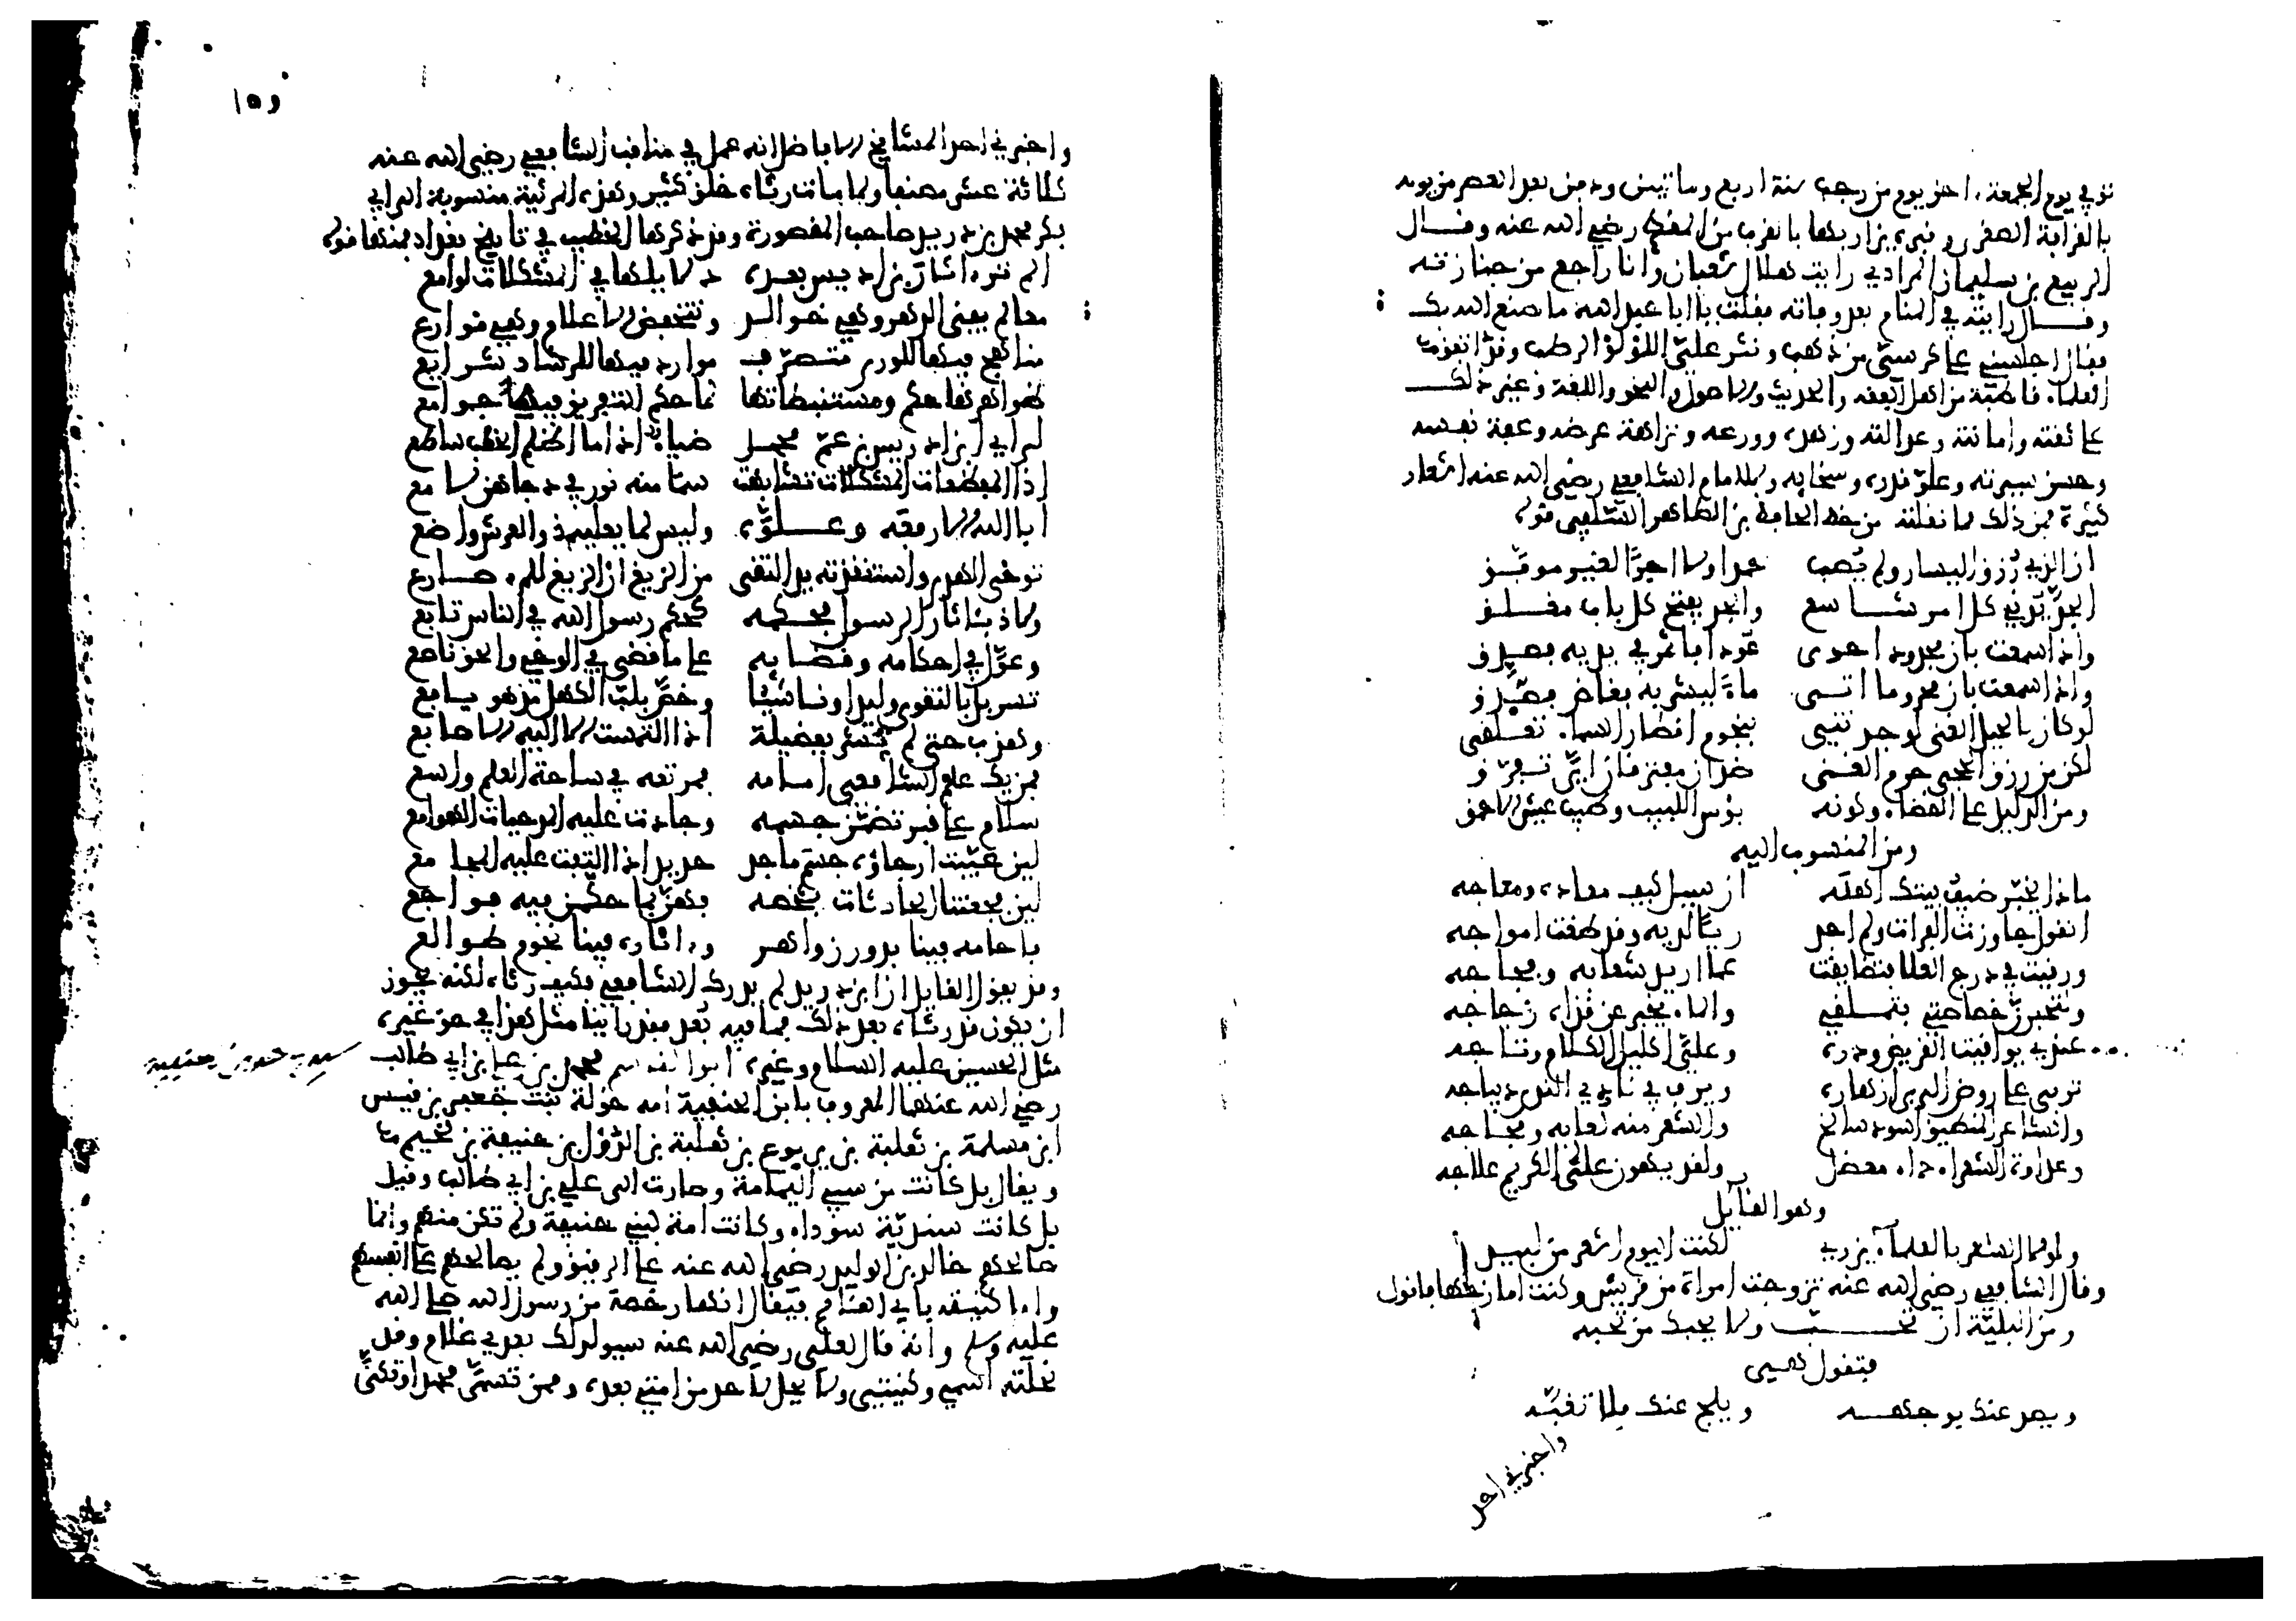 توفي يوم الجمعة اخر يوم من رجب سنة اربع وماتيين ودفن بعد العصر من يومه
بالقرافة الصغرى وقبره يزار بها بالقرب من المقطم رضي الله عنه وقال
الربيع بن سليمان المرادي رايت هلال شعبان وانا راجع من جنازته
وقال رايته في المنام بعد وفاته فقلت يا ابا عبد الله ما صنع الله بك
فقال اجلسني على كرسي من ذهب ونثر علي اللؤلؤ الرطب وقد اتفقت
العلماء قاطبة من اهل الفقه والحديث والاصول والنحو واللغة وغير ذلك
على ثقته وامانته وعدالته وزهده وورعه ونزاهة عرضه وعفة نفسه
وحسن سيرته وعلو قدره وسخايه وللامام الشافعي رضي الله عنه اشعار
كثيرة فمن ذلك ما نقلته من خط الحافظ بن الطاهر السلفي قوله
ان الذي رزق اليسار ولم يصب حمدا ولا اجرا لغير موفق
الجد يدني كل امر شاسع والجد يفتح كل باب مغلق
واذا سمعت بان مجدودا حوى عودا فاثمر في يديه فصدق
واذا سمعت بان محروما اتى ماء ليشربه فغاض فصدق
لو كان بالحيل الغنى لوجدتني بنجوم اقطار السماء تعلقي
لكن من رزق الحجى حرم الغنى ضدان مفترقان اي تفرق
ومن الدليل على القضاء وكونه بؤس اللبيب وطيب عيش الاحمق
ومن المنسوب اليه
ماذا يخبر ضيف بيتك اهله ان سيل كيف معاده ومعاجه
ايقول جاوزت الفرات ولم اجد ريا لديه وقد طغت امواجه
ورقيت في درج العلا فتضايقت عما اريد شعابه وفجاجه
ولتخبرن خصاصتي بتملقي والماء يخبر عن قذاه زجاجه
عندي يواقيت القريض ودره وعلي اكليل الكلام وتاجه
تربى على روض الربا ازهاره ويرف في نادي الندى ديباجه
والشاعر المنطيق اسود سالخ والشعر منه لعابه ومجاجه
وعداوة الشعراء داء معضل ولقد يهون على الكريم علاجه
وهو القائل
ولولا الشعر بالعلماء يزري لكنت اليوم اشعر من لبيد
وقال الشافعي رضي الله عنه تزوجت امراة من قريش وكنت امازحها فاقول
ومن البلية ان تحب ولا يحبك من تحبه
فتقول هي
ويصد عنك بوجهه ويلج عنك فلا تغبه
واخبرني احد
١٥٥
واخبرني احد المشايخ الافاضل انه عمل في مناقب الشافعي رضي الله عنه
ثلاثة عشر مصنفا ولما مات رثاه خلق كثير وهذه المرثية منسوبة الى ابي
بكر محمد بن دريد صاحب المقصورة وقد ذكرها الخطيب في تاريخ بغداد فمنها قوله
الم تر اثار بن ادريس بعده دلايلها في المشكلات لوامع
معالم يفنى الدهر وهي خوالد وتنخفض الاعلام وهي فوارع
مناهج فيها للورى متصرف موارد فيها للرشاد شرايع
ظواهرها حكم ومستنبطاتها لما حكم التفريق فيها جوامع
لراي ابن ادريس بن عم محمد ضياء اذا ما اظلم الخطب ساطع
اذا المعضلات المشكلات تشابهت سما منه نور في دجاهن لامع
ابا الله الا رفعه وعلوه وليس لما يعليه ذو العرش واضع
توخى الهدى واستنقذته يد التقى من الزيغ ان الزيغ للمرء صارع
ولاذ باثار الرسول فحكمه كحكم رسول الله في الناس تابع
وعول في احكامه وقضايه على ما قضى في الوحي والحق ناصع
تسربل بالتقوى وليدا وناشيا وخص بلب الكهل مذ هو يافع
وهذب حتى لم تشر بفضيلة اذا التمست الا اليه الاصابع
فمن يك علم الشافعي امامه فمرتعه في ساحة العلم واسع
سلام على قبر تضمن جسمه وجادت عليه المدجنات الهوامع
لين غيبت ارجاؤه جسم ماجد جدير اذا التفت عليه المجامع
لين فجعتنا الحادثات بشخصه فهن بما حكمن فيه فواجع
باحامه فينا بدور زواهر واثاره فينا نجوم طوالع
وقد يقول القايل ان ابن دريد لم يدرك الشافعي فكيف رثاه لكنه يجوز
ان يكون قد رثاه بعد ذلك فما فيه بعد فقد راينا مثل هذا في حق غيره
مثل الحسين عليه السلام وغيره ابو القاسم محمد بن علي بن ابي طالب
رضي الله عنهما المعروف بابن الحنفية امه خولة بنت جعفر بن قيس
ابن مسلمة بن ثعلبة بن يربوع بن ثعلبة بن الدؤل بن حنيفة بن لجيم
ويقال بل كانت من سبي اليمامة وصارت الى علي بن ابي طالب وقيل
بل كانت سندية سوداء وكانت امة لبني حنيفة ولم تكن منهم وانما
صالحهم خالد بن الوليد رضي الله عنه على الرقيق ولم يصالحهم على انفسهم
واما كنيته بابي القاسم فيقال انها رخصة من رسول الله صلى الله
عليه وسلم وانه قال لعلي رضي الله عنه سيولد لك بعدي غلام وقد
نحلته اسمي وكنيتي ولا يحل لاحد من امتي بعده وممن تسمى محمدا وتكنى